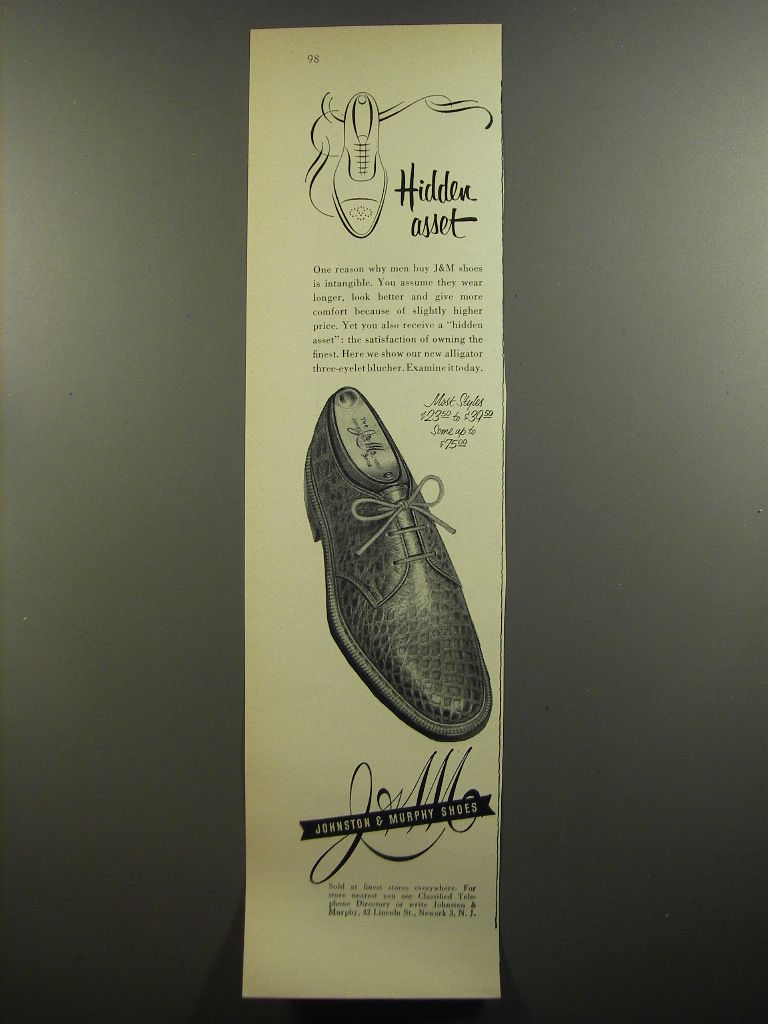 98
Hidden
asset
One reason why men buy J&M shoes
is intangible. You assume they wear
longer, look better and give more
comfort because of slightly higher
price. Yet you also receive a "hidden
asset": the satisfaction of owning the
finest. Here we show our new alligator
three-eyelet blucher. Examine it today.
Most Styles
$23.50 to $39.50
Some up to
$75.00
THE
J&M
SHOE
J&M
JOHNSTON & MURPHY SHOES
Sold at finest stores everywhere. For
store nearest you see Classified Tele-
phone Directory or write Johnston &
Murphy, 42 Lincoln St., Newark 3, N. J.